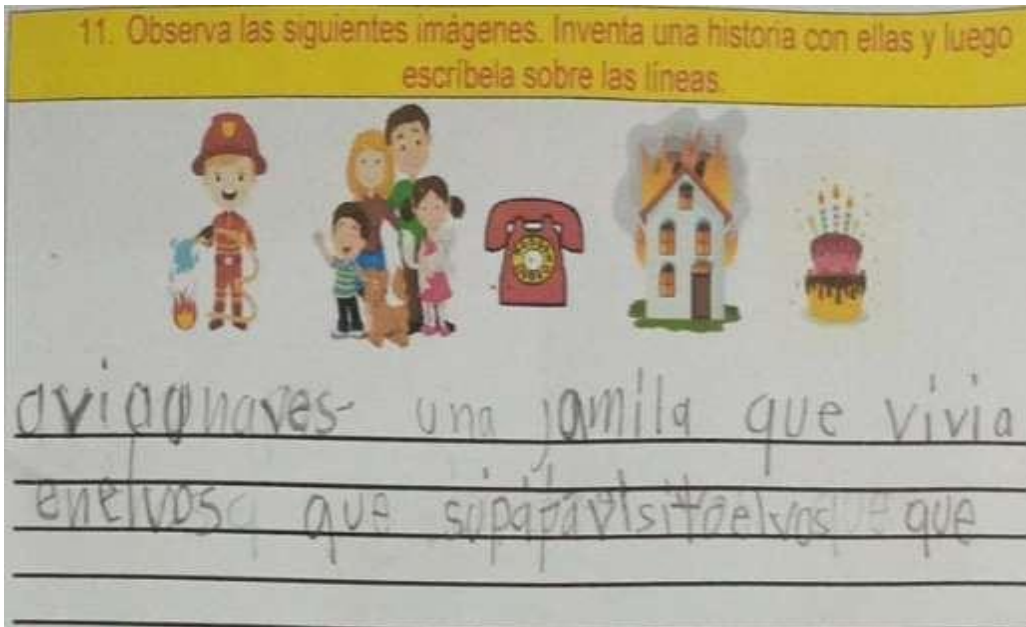 11. Observa las siguientes imágenes. Inventa una historia con ellas y luego
escríbela sobre las líneas.
una jamila que vivia
enelvos que supapavisitoelvos que